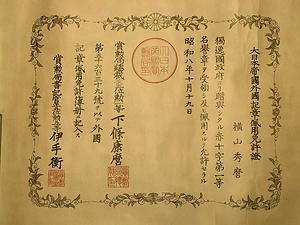 大日本帝國外國記章佩用免許證
横山秀麿
獨逸國政府ヨリ贈與シタル赤十字第一等
名譽章ヲ受領シ及ヒ佩用スルヲ允許セラル
昭和八年十月十九日
賞勲局總裁正三位勲一等下條康麿
第二千六百三十九號ヲ以テ外國
記章佩用免許簿册ニ記入ス
賞勲局書記官正五位勲四等伊手衡